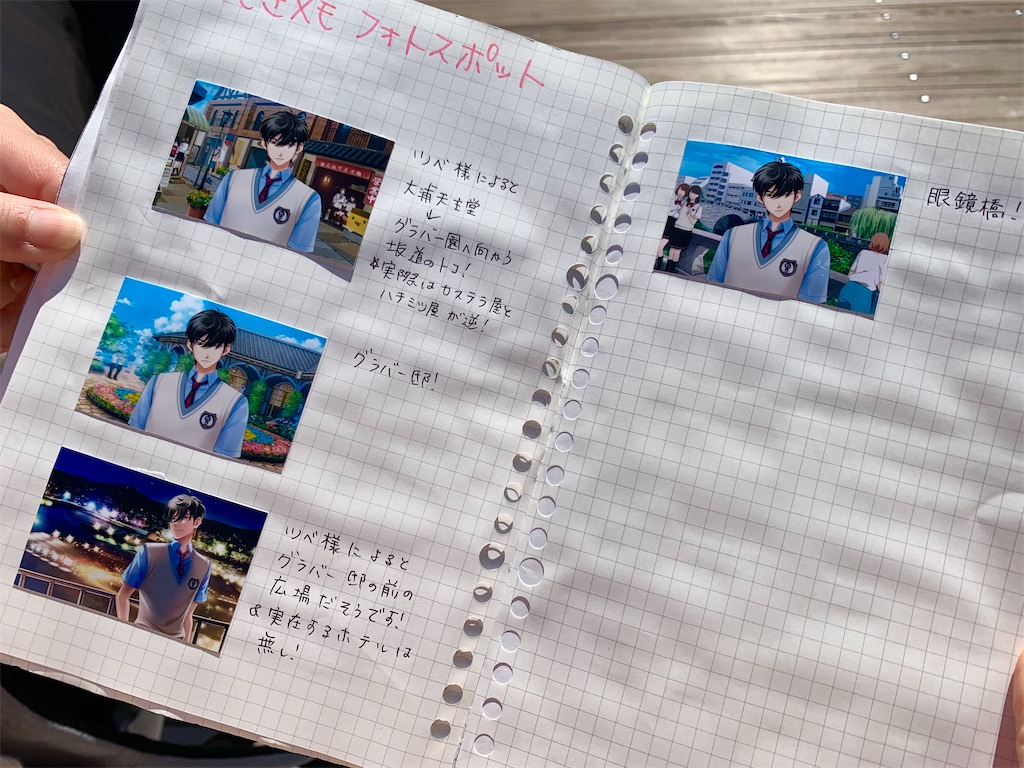 ときメモ フォトスポット
ツベ様によると
大浦天主堂
↓
グラバー園へ向から
坂道のトコ!
&実際はカステラ屋と
ハチミツ屋が逆!
グラバー邸!
ツベ様によると
グラバー邸の前の
広場だそうです!
&実在するホテルは
無し!
眼鏡橋!